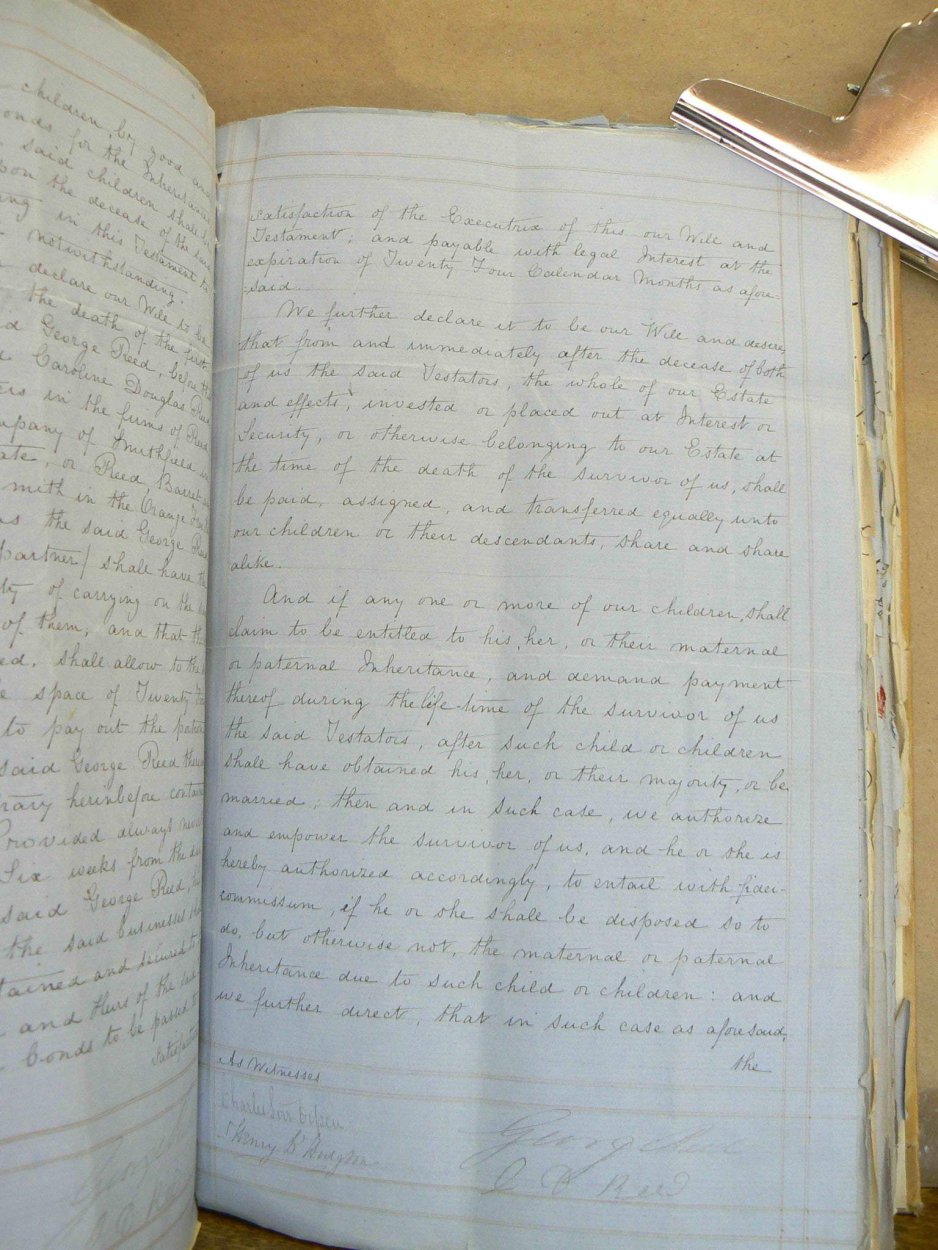 children, by good and
onds for the Inheritance
said children shall be
pon the decease of the
ing in this Testament to
notwithstanding.
declare our Will to be
the death of the first
George Reed, before the
Caroline Douglas Reed
in the firms of Reed
mpany of Smithfield in
ate, or Reed, Barret
mith in the Orange Free
as the said George Reed
partner) shall have the
ty of carrying on the
of them, and that the
ed, shall allow to the
space of Twenty Four
to pay out the paternal
said George Reed
rary herinbefore contain
Provided always
Six weeks from the
said George Reed,
the said businesses
tained and secured to
and Heirs of the
bonds to be passed to
satisfaction
satisfaction of the Executrix of this our Will and
Testament; and payable with legal Interest at the
expiration of Twenty Four Calendar Months as afore-
said.
We further declare it to be our Will and desire,
that from and immediately after the decease of both
of us the said Testators, the whole of our Estate
and effects, invested or placed out at Interest or
Security, or otherwise belonging to our Estate at
the time of the death of the survivor of us, shall
be paid, assigned, and transferred equally unto
our children or their descendants, share and share
alike.
And if any one or more of our children, shall
claim to be entitled to his, her, or their maternal
or paternal Inheritance, and demand payment
thereof during the life-time of the survivor of us
the said Testators, after such child or children
shall have obtained his, her, or their majority, or be
married; then and in such case, we authorize
and empower the survivor of us, and he or she is
hereby authorized accordingly, to entail with fidei-
commissum, if he or she shall be disposed so to
do, but otherwise not, the maternal or paternal
Inheritance due to such child or children: and
we further direct, that in such case as aforesaid,
the
As Witnesses
Henry B Hodgson
George Reed
C D Reed